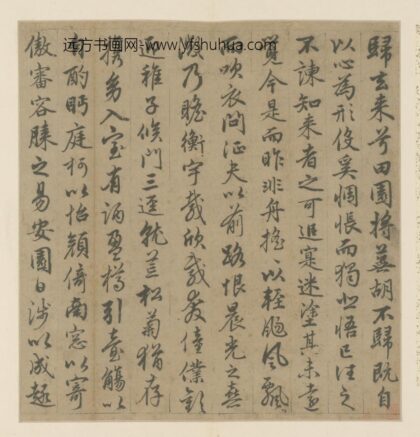 远方书画网-www.yfshuhua.com
歸去来兮田園將蕪胡不歸既自
以心為形役奚惆悵而獨悲悟已往之
不諫知来者之可追寔迷塗其未遠
覺今是而昨非舟搖〻以輕颺風飄〻
而吹衣問征夫以前路恨晨光之熹
微乃瞻衡宇載欣載奔僮僕歡
迎稚子候門三逕就荒松菊猶存
携幼入室有酒盈樽引壺觴以
自酌眄庭柯以怡顏倚南窓以寄
傲審容膝之易安園日涉以成趣